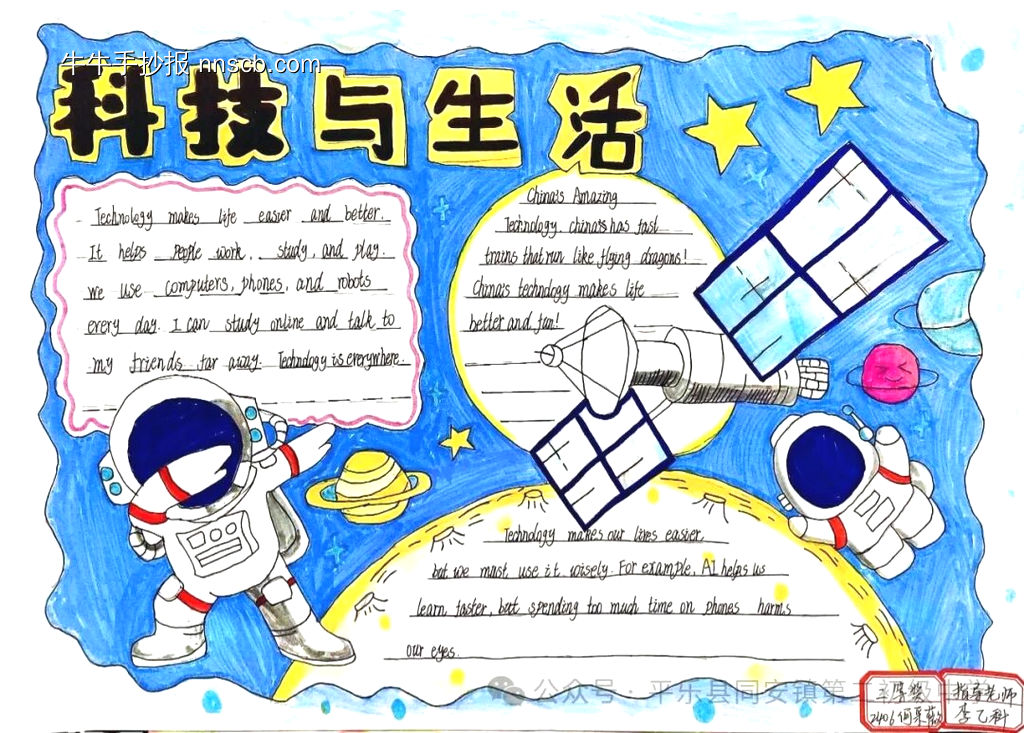 牛牛手抄报 nnscb.com
科技与生活
Technology makes life easier and better.
It helps people work, study, and play.
we use computers, phones, and robots
every day. I can study online and talk to
my friends far away. Technology is everywhere.
China's Amazing
Technology. china's has fast
trains that run like flying dragons!
China's technology makes life
better and fun!
Technology makes our lives easier,
but we must use it wisely. For example, AI helps us
learn faster, but spending too much time on phones harms
our eyes.
公众号 · 平乐县同安镇第二初级中学
指导老师
2406
李乙科